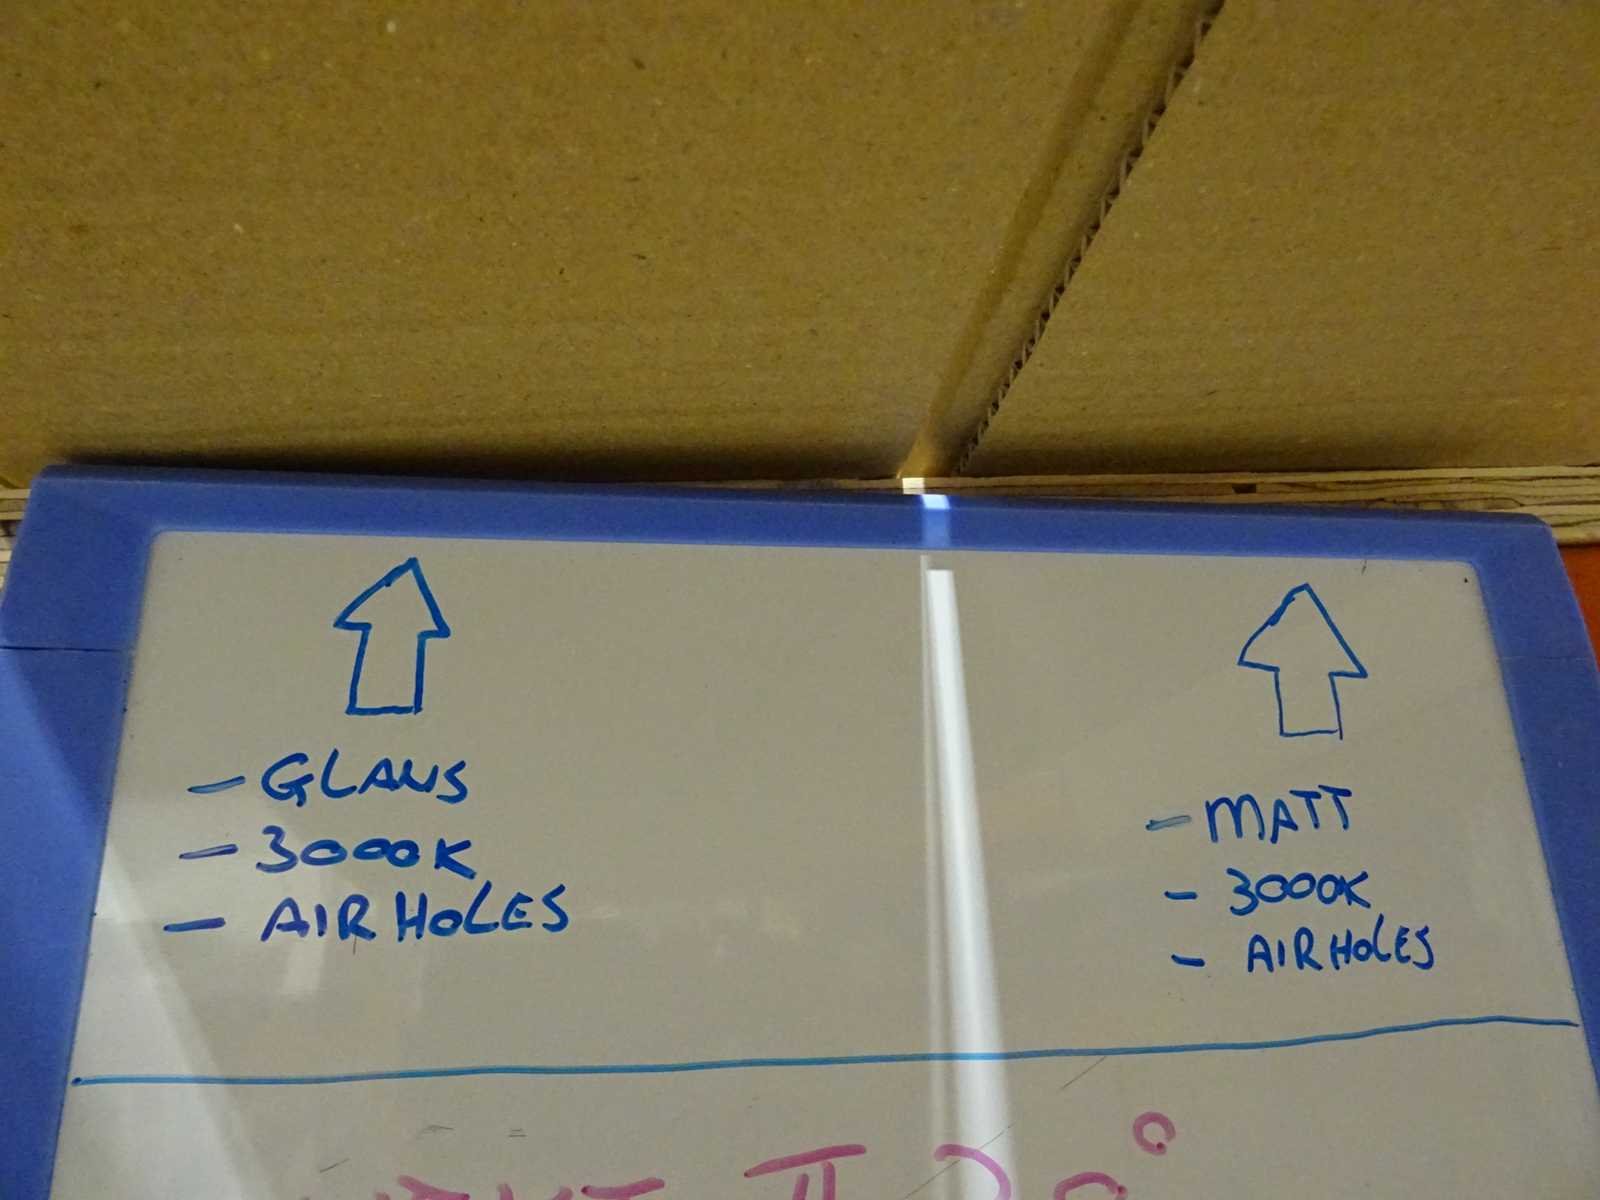 - GLANS
- 3000K
- AIRHOLES
- MATT
- 3000K
- AIRHOLES